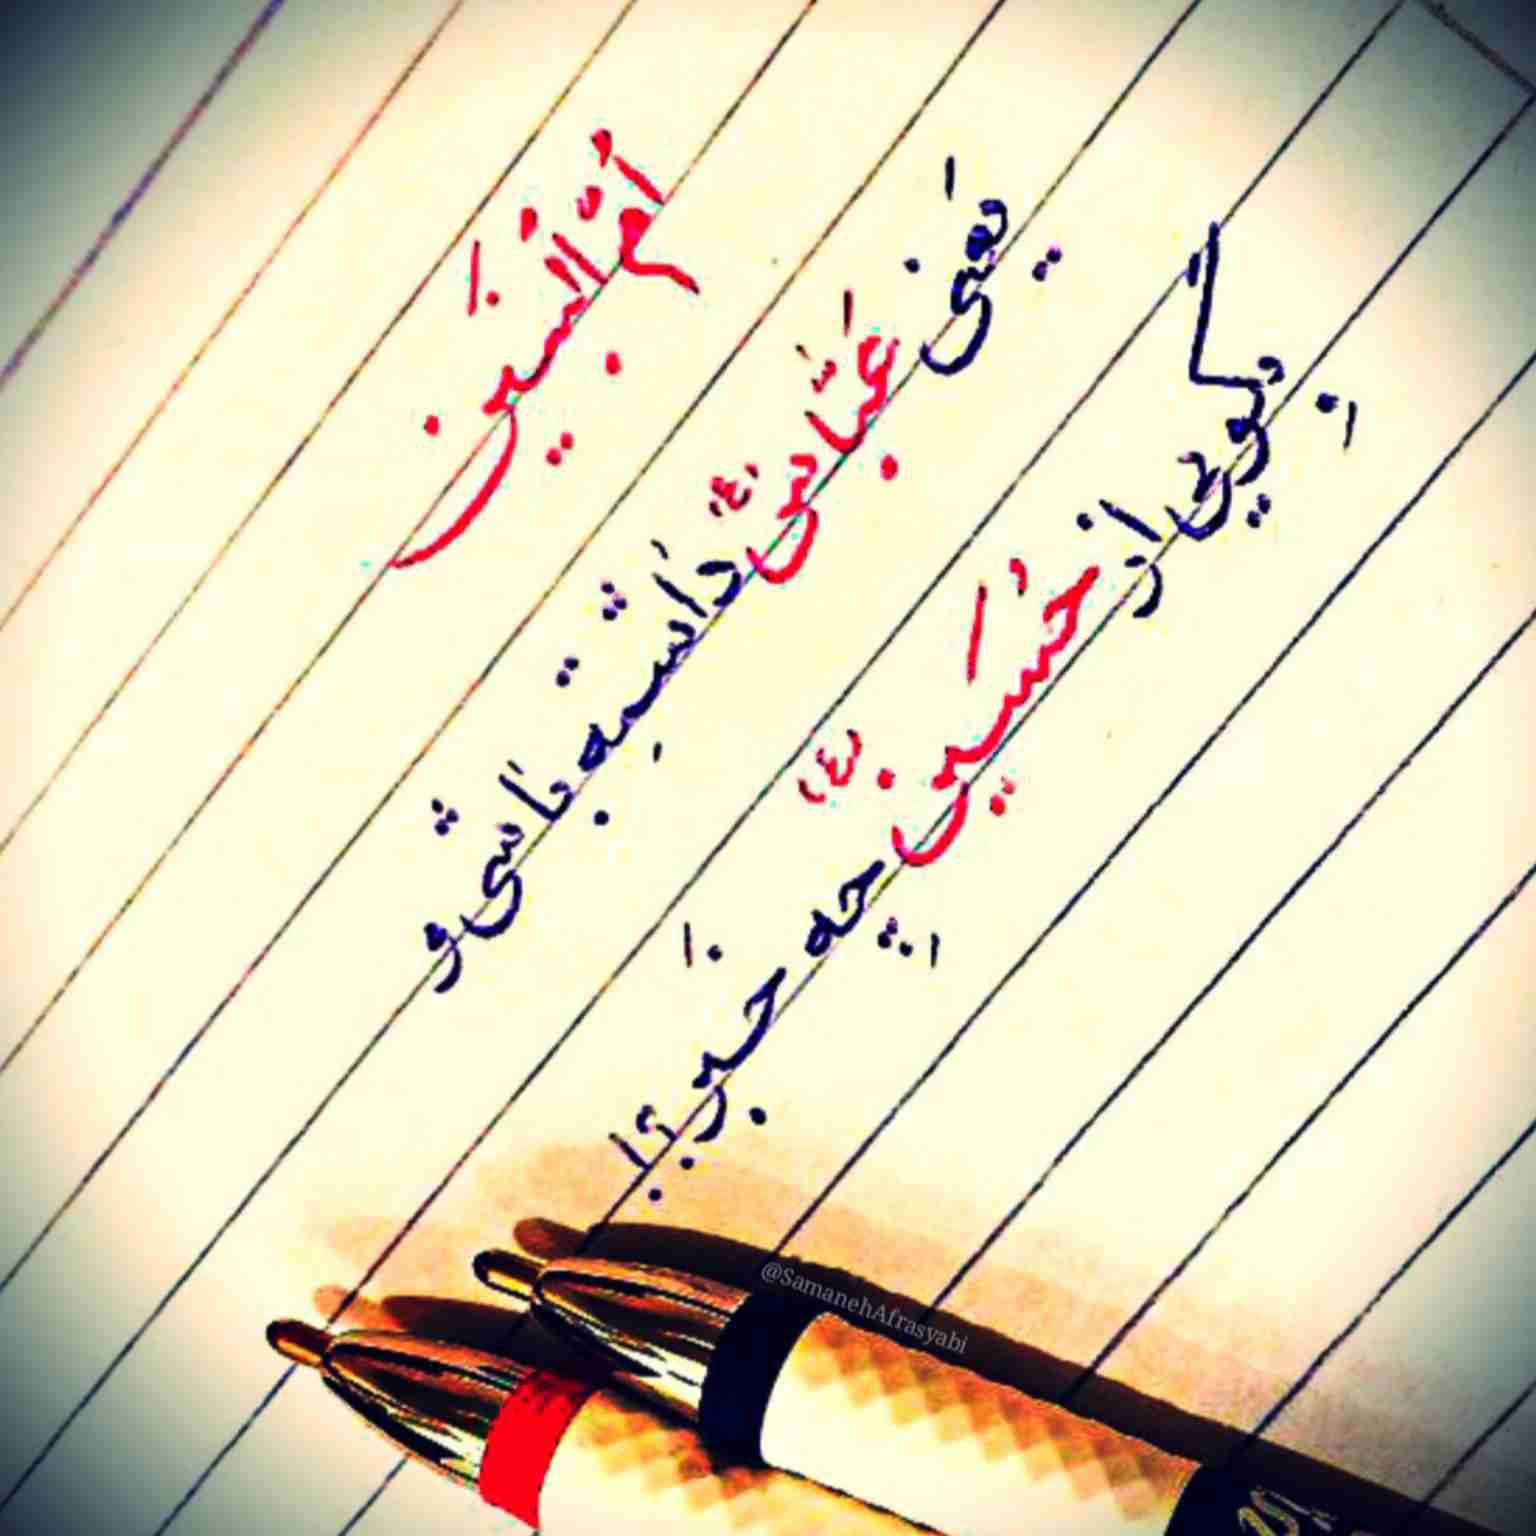 اُمُّ البَنین
یَعنی عَبّاس(ع) داشتِه باشی و
بِگویی از حُسَین(ع) چِه خَبر؟!
@SamanehAfrasyabi